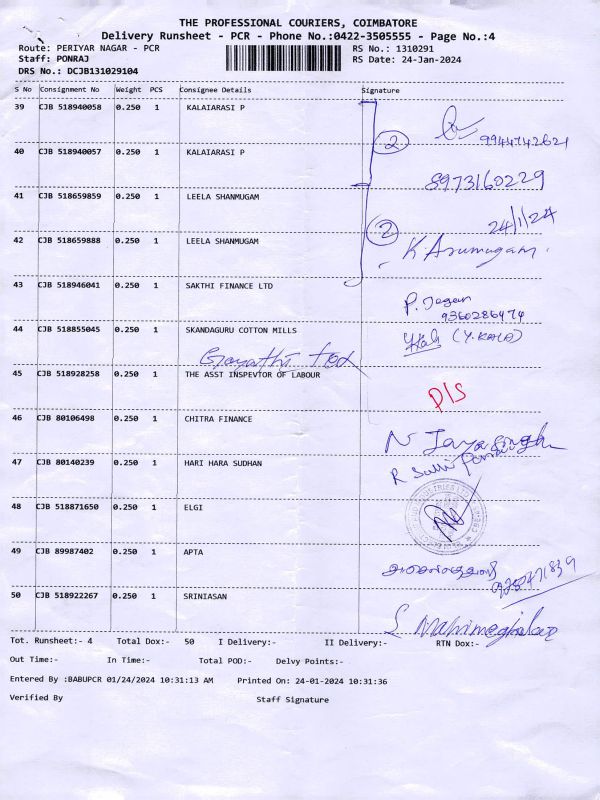 THE PROFESSIONAL COURIERS, COIMBATORE
Delivery Runsheet - PCR - Phone No.:0422-3505555 - Page No.:4
Route: PERIYAR NAGAR - PCR RS No.: 1310291
Staff: PONRAJ RS Date: 24-Jan-2024
DRS No.: DCJB131029104
S No Consignment No Weight PCS Consignee Details Signature
39 CJB 518940058 0.250 1 KALAIARASI P 9944742621
40 CJB 518940057 0.250 1 KALAIARASI P 2
8973160229
41 CJB 518659859 0.250 1 LEELA SHANMUGAM
24/1/24
42 CJB 518659888 0.250 1 LEELA SHANMUGAM 2 K. Arumugam
43 CJB 518946041 0.250 1 SAKTHI FINANCE LTD P. Jegan
9360286474
44 CJB 518855045 0.250 1 SKANDAGURU COTTON MILLS (Y. KALA)
Gayathi tex
45 CJB 518928258 0.250 1 THE ASST INSPEVTOR OF LABOUR D/S
46 CJB 80106498 0.250 1 CHITRA FINANCE N Jayasingh
47 CJB 80140239 0.250 1 HARI HARA SUDHAN R
48 CJB 518871650 0.250 1 ELGI
49 CJB 89987402 0.250 1 APTA
50 CJB 518922267 0.250 1 SRINIASAN
Tot. Runsheet:- 4 Total Dox:- 50 I Delivery:- II Delivery:- RTN Dox:-
Out Time:- In Time:- Total POD:- Delvy Points:-
Entered By :BABUPCR 01/24/2024 10:31:13 AM Printed On: 24-01-2024 10:31:36
Verified By Staff Signature